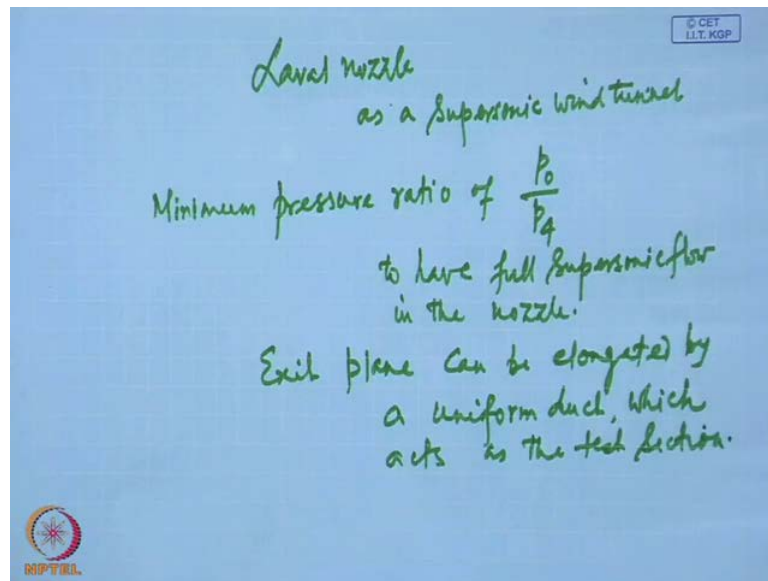 © CET
I.I.T. KGP
Laval nozzle
as a Supersonic wind tunnel
Minimum pressure ratio of p₀/p₄
to have full Supersonic flow
in the nozzle.
Exit plane can be elongated by
a uniform duct, which
acts as the test Section.
NPTEL